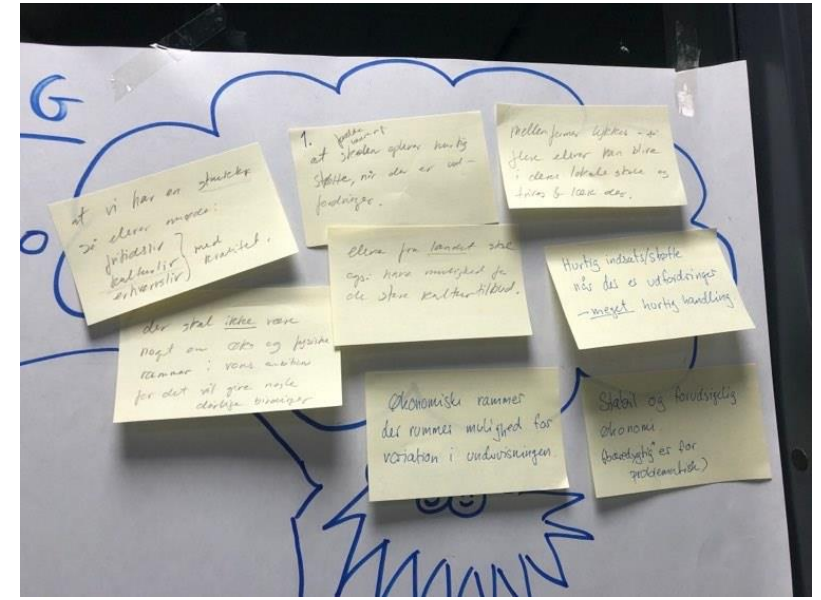 G
O
at vi har en struktur
så elever møder:
fritidsliv
kulturliv
erhvervsliv
med
kvalitet.
1.
at skolen oplever hurtig
støtte, når der er ud-
fordringer.
Mellemformer lykkes - så
flere elever kan blive
i deres lokale skole og
trives & lære der.
elever fra landet skal
også have mulighed for
de store kulturtilbud.
Hurtig indsats/støtte
når der er udfordringer
- meget hurtig handling
der skal ikke være
noget om øko og fysiske
rammer i vores ambition
for det vil give nogle
dårlige bindinger
Økonomiske rammer
der rummer mulighed for
variation i undervisningen
Stabil og forudsigelig
økonomi.
("bæredygtig" er for
problematisk)